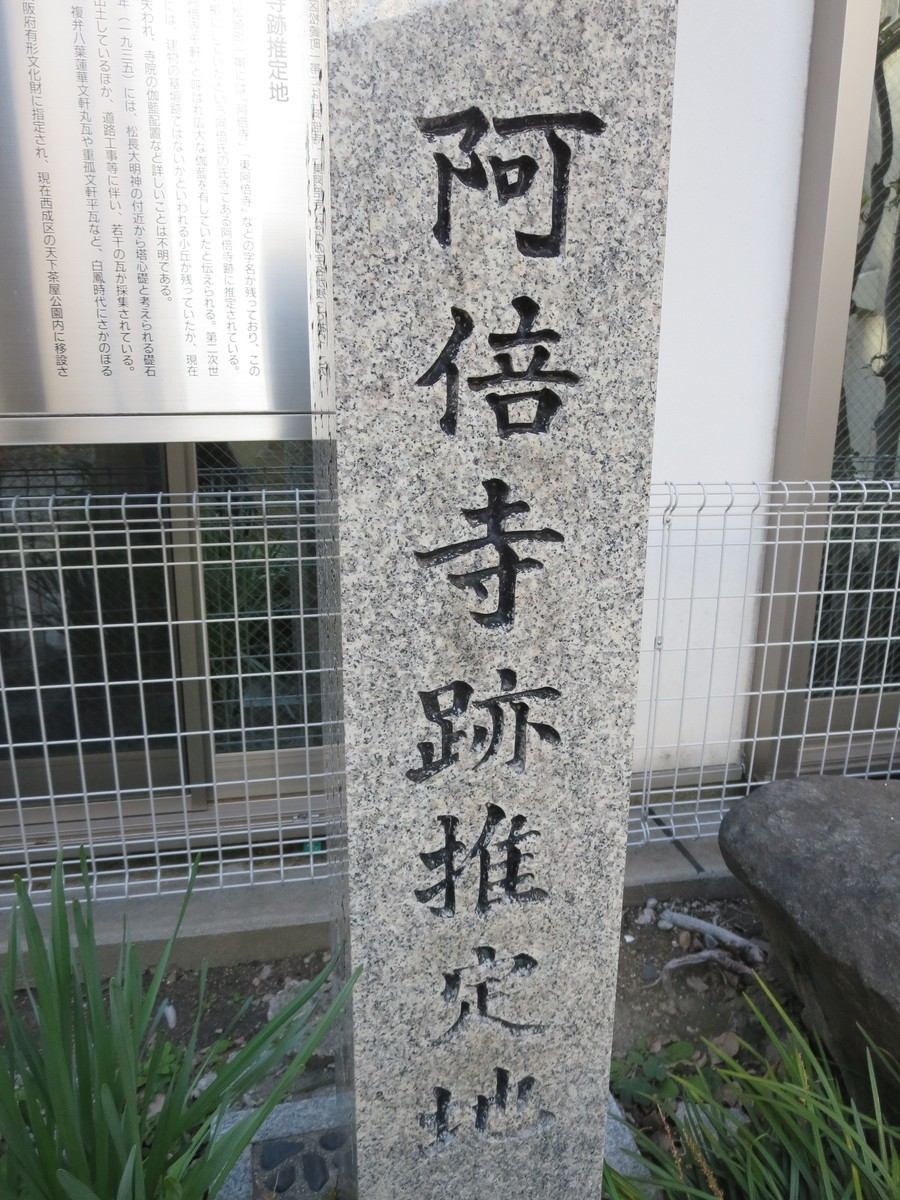 阿倍寺跡推定地
寺跡推定地
などの字名が残っており、この
阿倍氏の氏寺である阿倍寺跡に推定されている。
と呼ばれた大な伽藍を有していたと伝えられる。第二次世
には、建物の基壇跡ではないかといわれる小丘が残っていたが、現在
失われ、寺院の伽藍配置など詳しいことは不明である。
年(一九三五)には、松長大明神の付近から塔心礎と考えられる礎石
出土しているほか、道路工事等に伴い、若干の瓦が採集されている。
複弁八葉蓮華文軒丸瓦や重孤文軒平瓦など、白鳳時代にさかのぼる
阪府有形文化財に指定され、現在西成区の天下茶屋公園内に移設さ